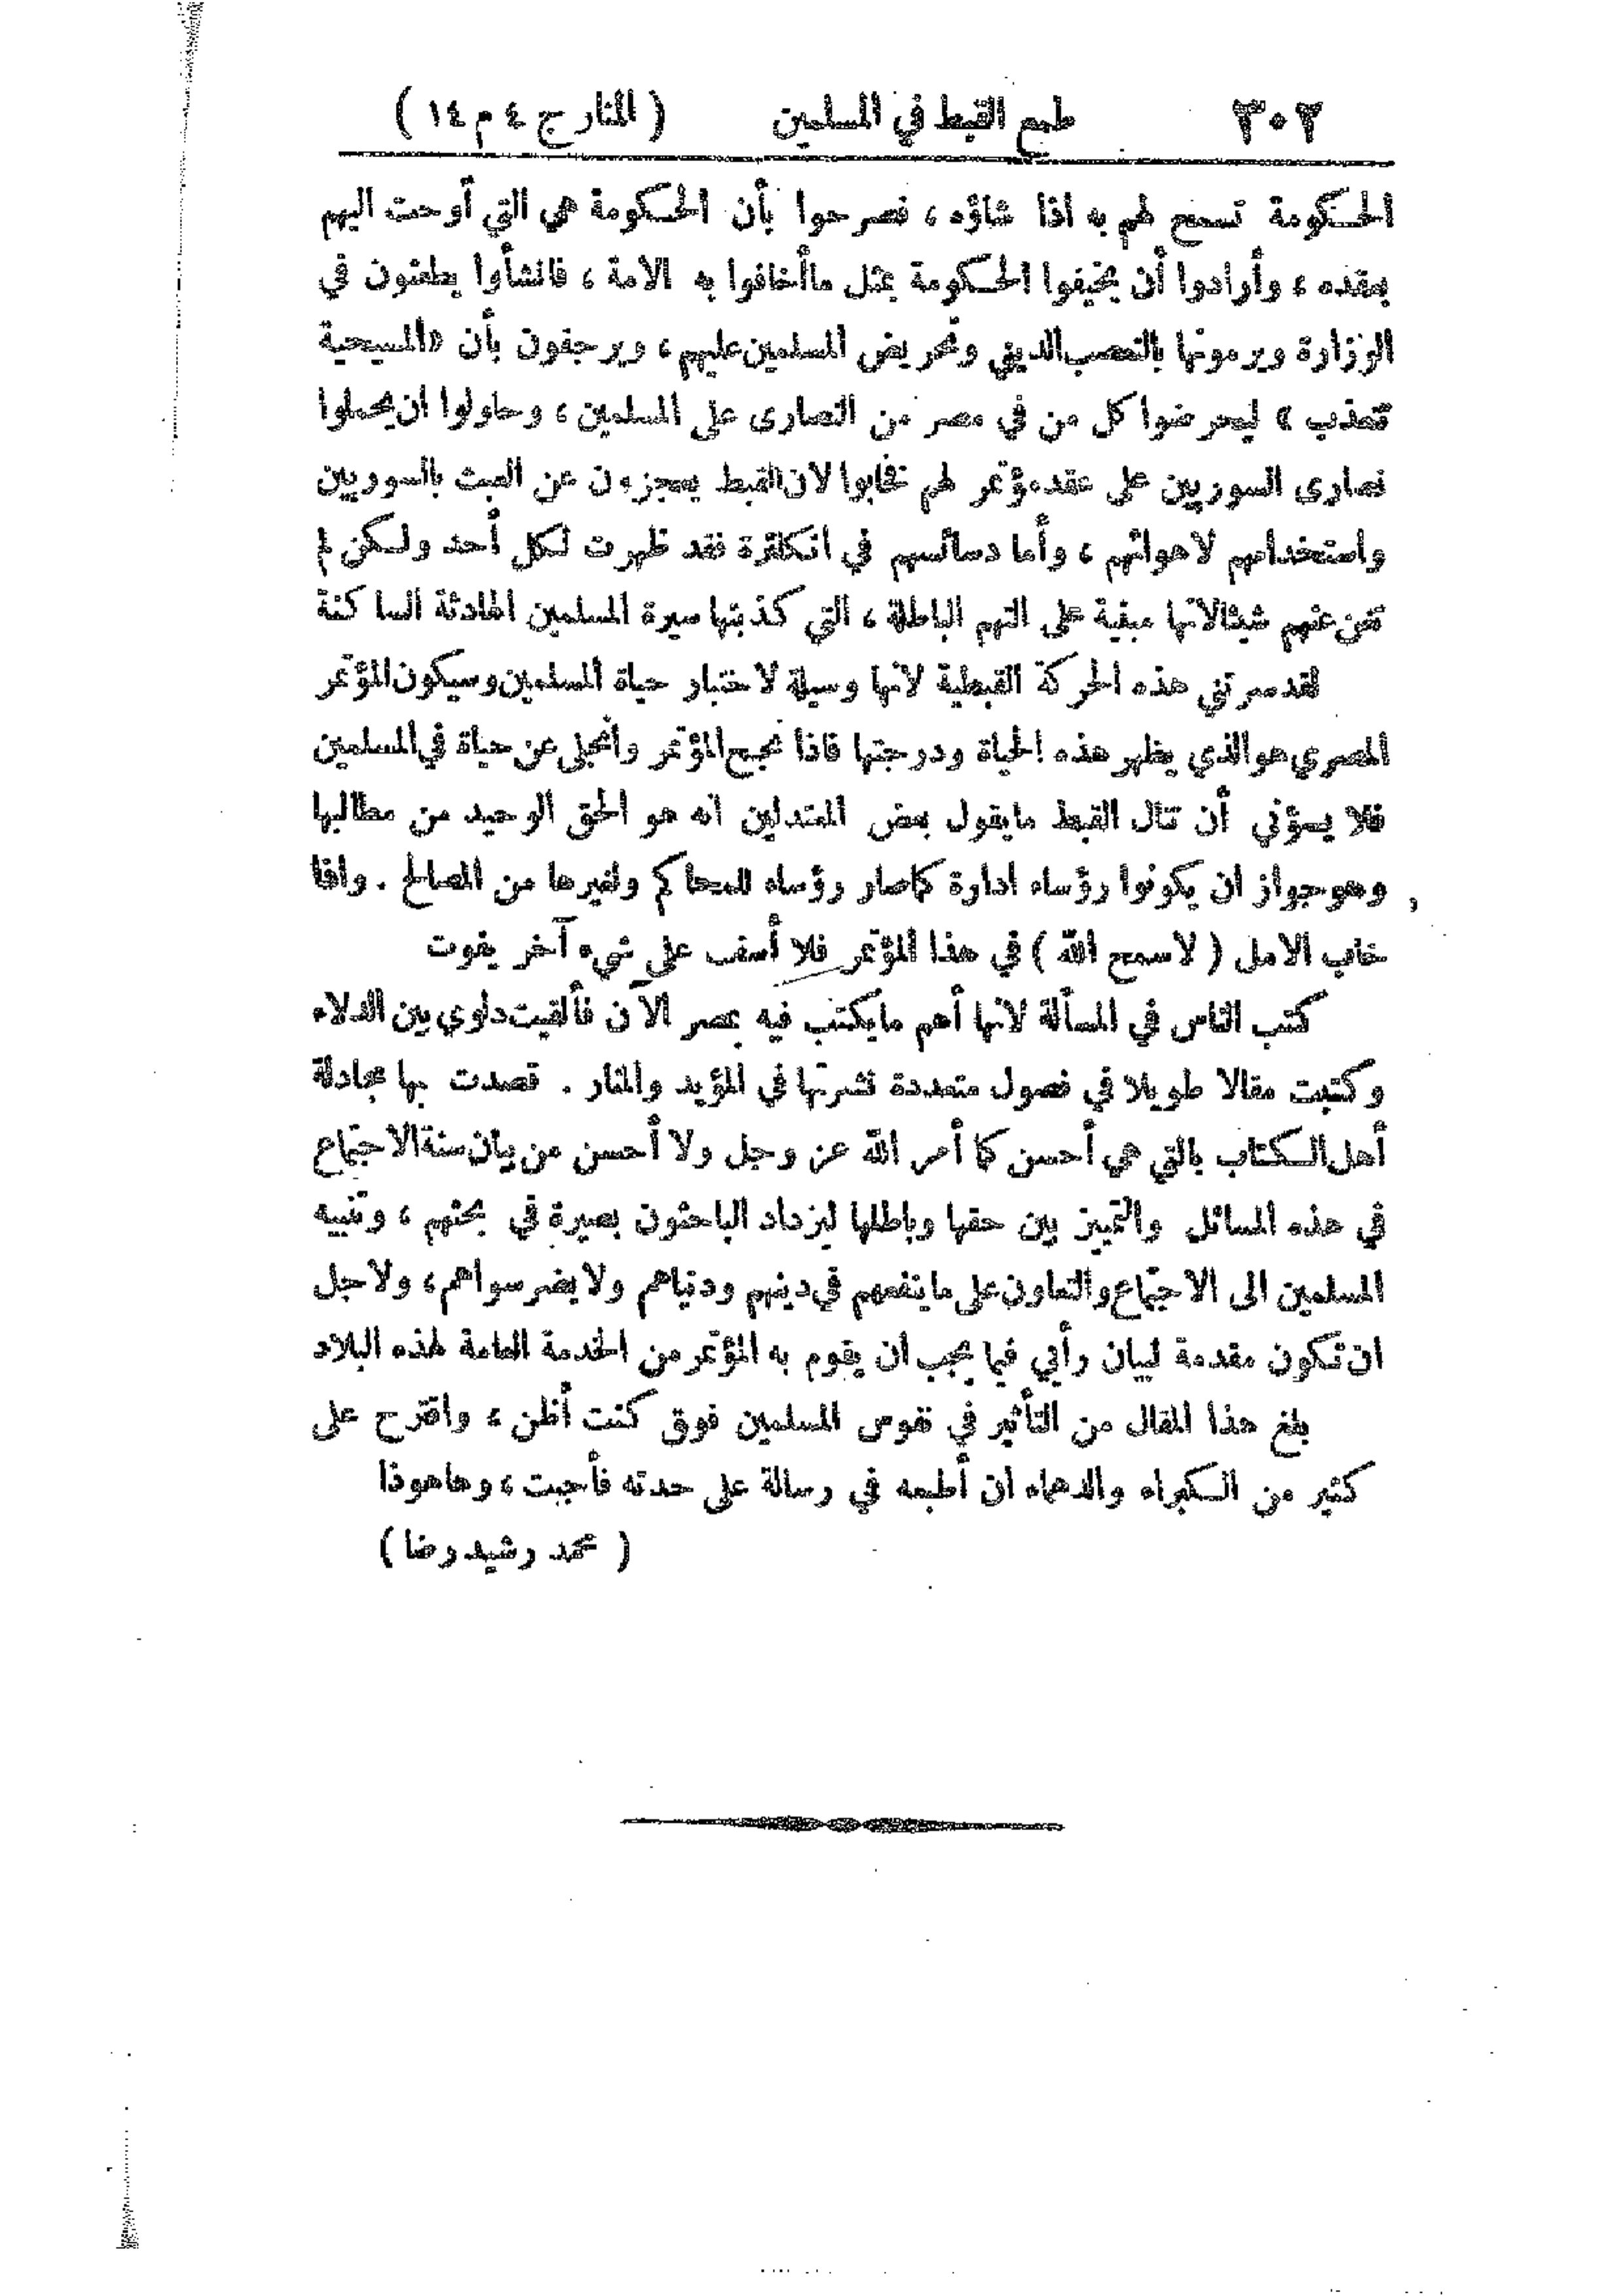 ٣٠٢ طمع القبط في المسلمين ( المنار ج ٤ م ١٤ )
الحكومة تسمح لهم به اذا شاؤه ، فصرحوا بأن الحكومة هي التي أوحت اليهم
بعقده ، وأرادوا أن يخيفوا الحكومة بمثل ماأخافوا به الامة ، فانشأوا يطعنون في
الوزارة ويرمونها بالتعصب الديني وتحريض المسلمين عليهم ، ويرجفون بأن «المسيحية
تعذب » ليحرضوا كل من في مصر من النصارى على المسلمين ، وحاولوا ان يحملوا
نصارى السوريين على عقد مؤتمر لهم فخابوا لان القبط يعجزون عن العبث بالسوريين
واستخدامهم لاهوائهم ، وأما دسائسهم في انكلترة فقد ظهرت لكل أحد ولكن لم
تغن عنهم شيئا لانها مبنية على التهم الباطلة ، التي كذبتها سيرة المسلمين الهادئة الساكنة
لقد سرتني هذه الحركة القبطية لانها وسيلة لاختبار حياة المسلمين وسيكون المؤتمر
المصري هو الذي يظهر هذه الحياة ودرجتها فاذا نجح المؤتمر وانجلى عن حياة في المسلمين
فلا يسؤني أن تنال القبط مايقول بعض المعتدلين انه هو الحق الوحيد من مطالبها
وهو جواز ان يكونوا رؤساء ادارة كما صار رؤساء للمحاكم ولغيرها من المصالح . واذا
خاب الامل ( لاسمح الله ) في هذا المؤتمر فلا أسف على شيء آخر يفوت
كتب الناس في المسألة لانها أهم مايكتب فيه بمصر الآن فألقيت دلوي بين الدلاء
وكتبت مقالا طويلا في فصول متعددة نشرتها في المؤيد والمنار . قصدت بها مجادلة
أهل الكتاب بالتي هي أحسن كما أمر الله عز وجل ولا أحسن من بيان سنة الاجتماع
في هذه المسائل والتمييز بين حقها وباطلها ليزداد الباحثون بصيرة في بحثهم ، وتنبيه
المسلمين الى الاجتماع والتعاون على ماينفعهم في دينهم ودنياهم ولا يضر سواهم ، ولاجل
ان تكون مقدمة لبيان رأيي فيما يجب ان يقوم به المؤتمر من الخدمة العامة لهذه البلاد
بلغ هذا المقال من التأثير في نفوس المسلمين فوق كنت أظن ، واقترح على
كثير من الكبراء والدهماء ان أطبعه في رسالة على حدته فأجبت ، وهاهوذا
( محمد رشيد رضا )